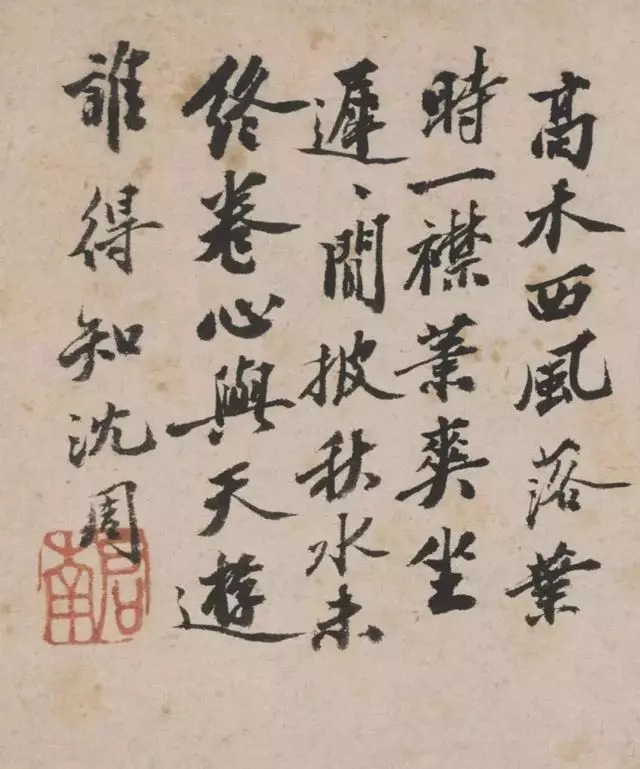 高木西風落葉
時一襟蕭爽坐
遲、閒披秋水未
終卷心與天遊
誰得知沈周
啓南